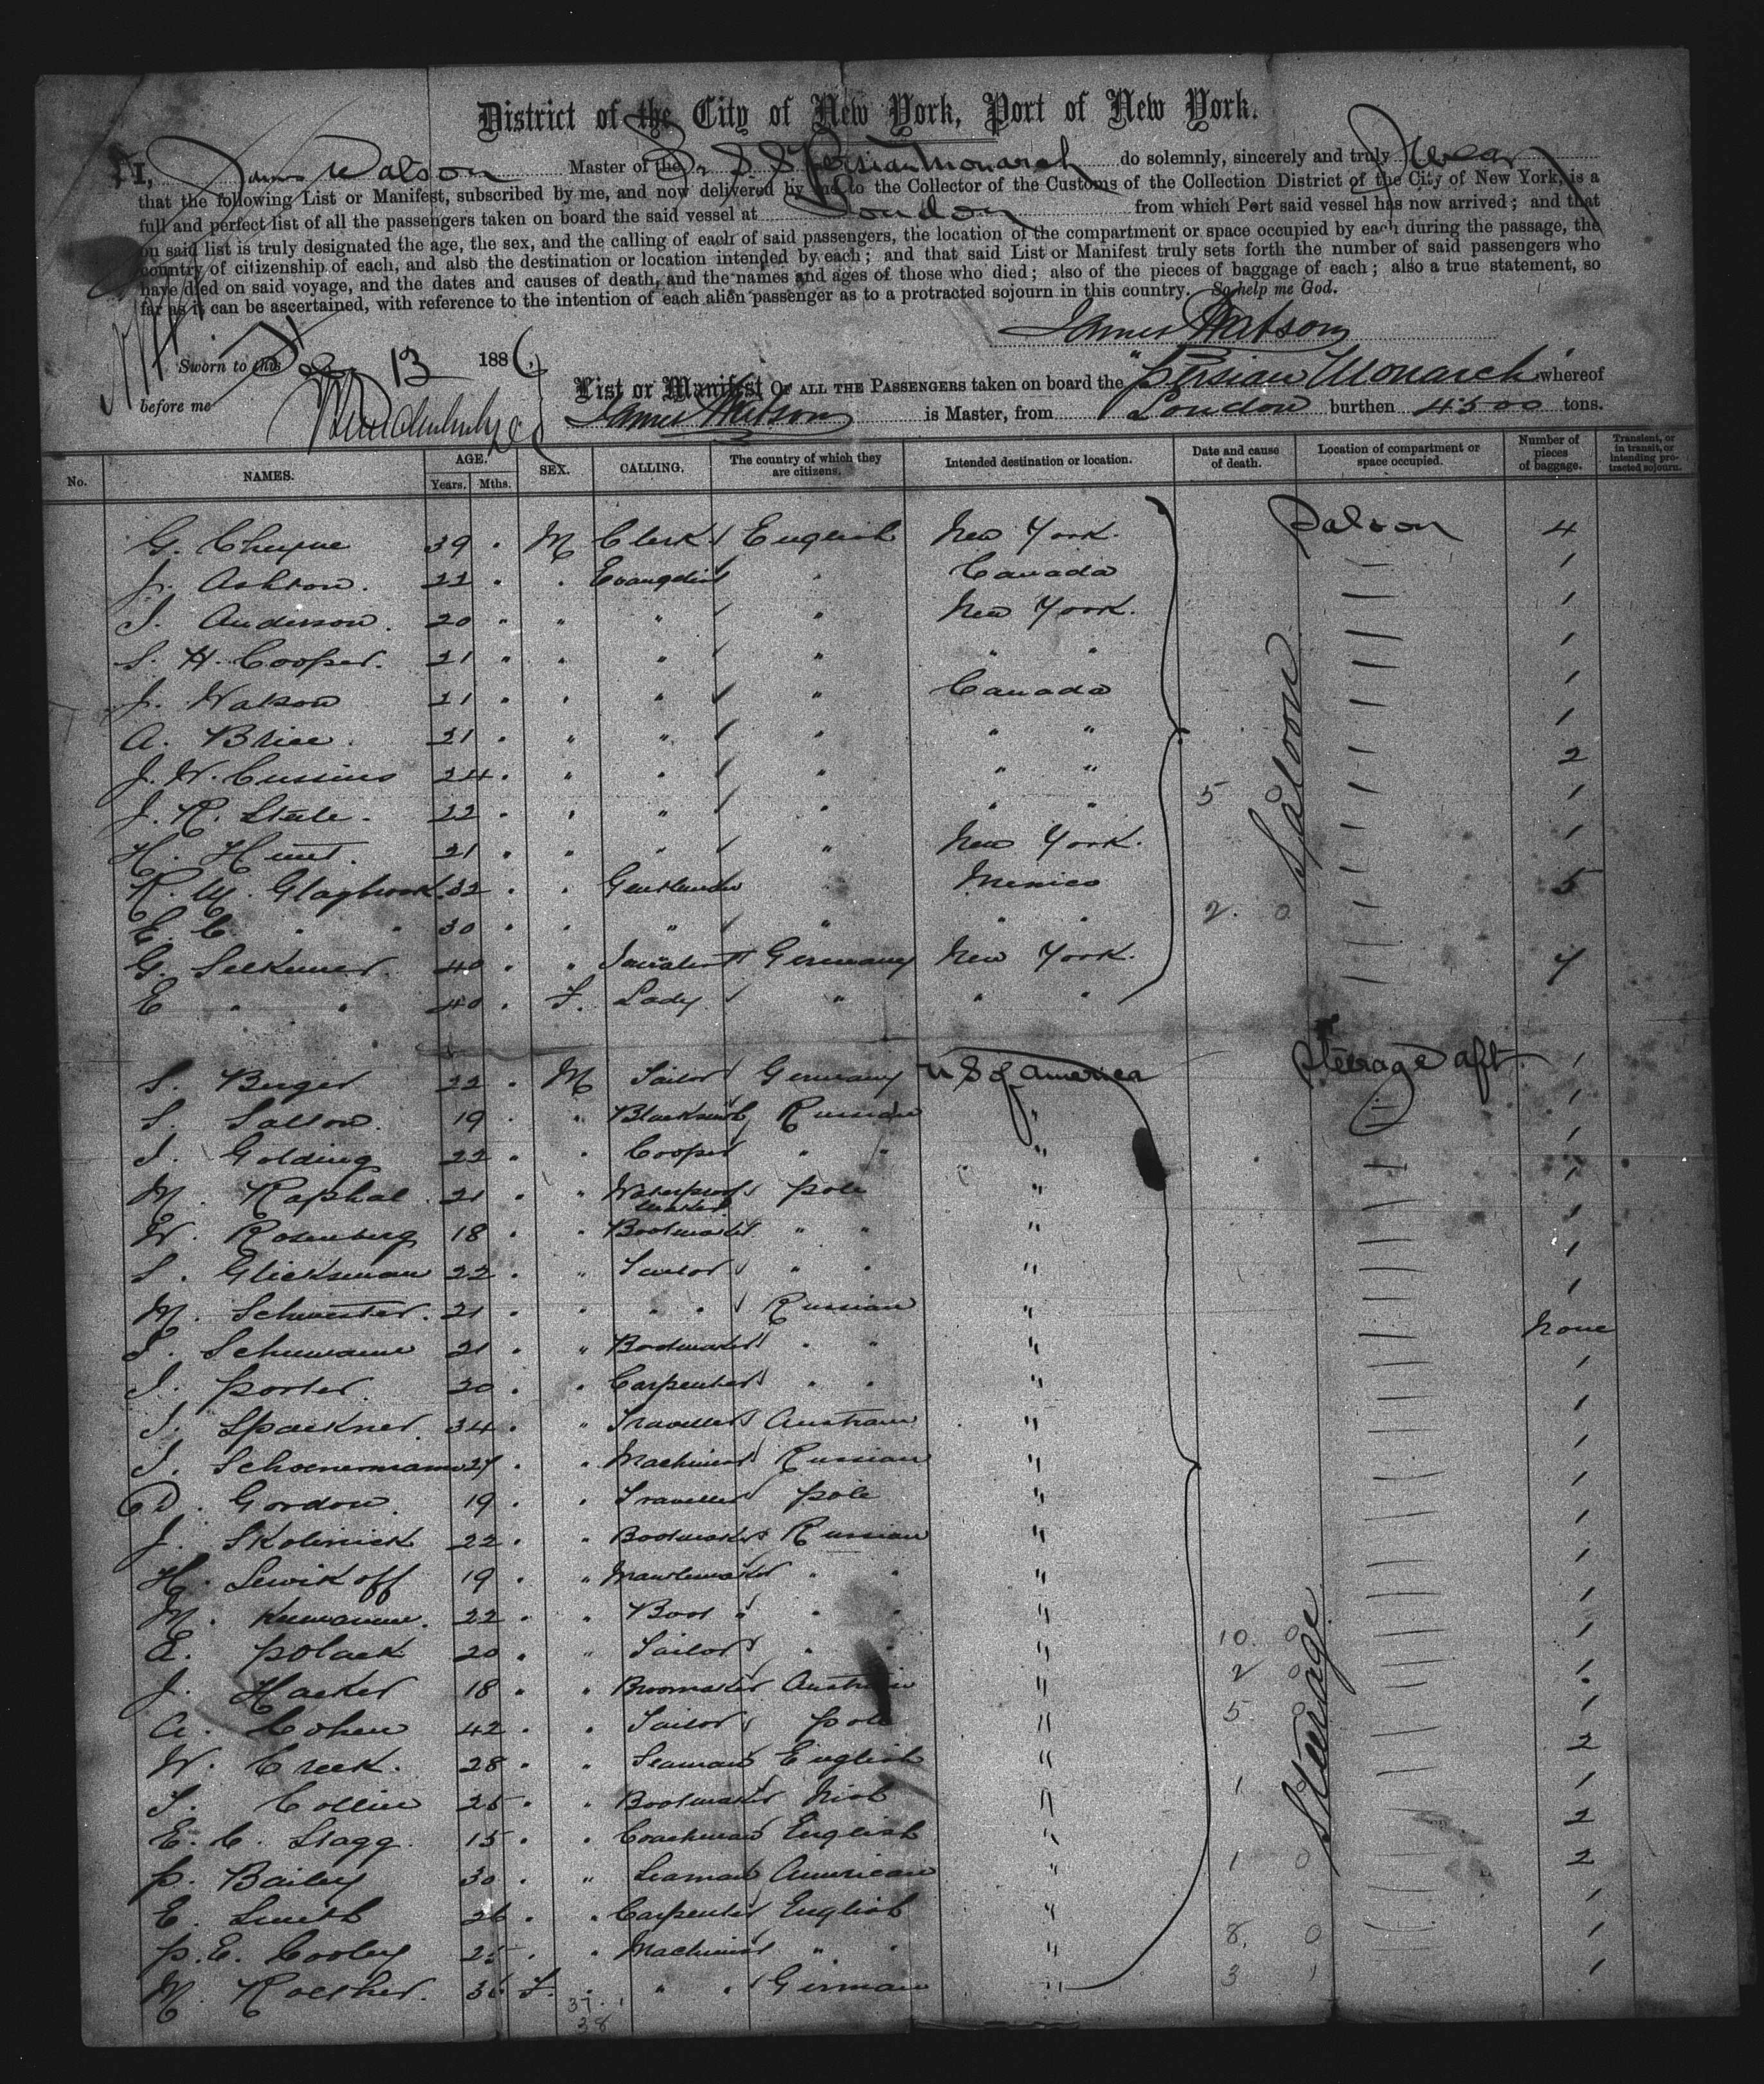 District of the City of New York, Port of New York.
I, James Watson Master of the Br S. S. Persian Monarch do solemnly, sincerely and truly Swear
that the following List or Manifest, subscribed by me, and now delivered by me to the Collector of the Customs of the Collection District of the City of New York, is a
full and perfect list of all the passengers taken on board the said vessel at London from which Port said vessel has now arrived; and that
on said list is truly designated the age, the sex, and the calling of each of said passengers, the location of the compartment or space occupied by each during the passage, the
country of citizenship of each, and also the destination or location intended by each; and that said List or Manifest truly sets forth the number of said passengers who
have died on said voyage, and the dates and causes of death, and the names and ages of those who died; also of the pieces of baggage of each; also a true statement, so
far as it can be ascertained, with reference to the intention of each alien passenger as to a protracted sojourn in this country. So help me God.
James Watson
Sworn to this 13 1886
before me
List or Manifest OF ALL THE PASSENGERS taken on board the "Persian Monarch" whereof
James Watson is Master, from London burthen 4500 tons.
No. NAMES. AGE. Years. Mths. SEX. CALLING. The country of which they are citizens. Intended destination or location. Date and cause of death. Location of compartment or space occupied. Number of pieces of baggage. Transient, or in transit, or intending protracted sojourn.
G. Cheyne 39 " M Clerk English New York. Saloon 4
J. Ashton. 22 " " Evangelist " Canada 1
J. Anderson. 20 " " " " New York. 1
S. H. Cooper. 21 " " " " " " 1
J. Watson 21 " " " " Canada 1
A. Brice. 21 " " " " " " 1
J. W. Cussins 24 " " " " " " 2
J. R. Steele. 22 " " " " " " 5 0 Saloon 1
H. Hunt. 21 " " " " New York. 1
R. M. Glazbrook. 32 " " Gentleman " Mexico 5
E. C. " " 30 " " " " " " 2. 0
G. Selkmer. 40 " " Germany New York. 7
E " " 40 " F. Lady " " "
S. Berger 22 " M Tailor Germany U S of America Steerage aft. 1
S. Salton. 19 " " Blacksmith Russian " 1
I. Golding 22 " " Cooper " " " 1
M. Raphal 21 " " Waterproof maker Pole " 1
W. Rosenberg 18 " " Bootmaker " " " 1
S. Glicksman 22 " " Tailor " " " 1
M. Schwester. 21 " " " " Russian " 1
I. Schumann 21 " " Bootmaker " " " None
I. Porter. 20 " " Carpenter " " " 1
I. Spackner. 34 " " Traveller Austrian " 1
I. Schoenemann 27 " " Machinist Russian " 1
D. Gordon 19 " " Traveller Pole " 1
J. Skolinick 22 " " Bootmaker Russian " 1
H. Lewikoff 19 " " Mantlemaker " " " 1
M. 22 " " Boot " " " " 1
E. Polack 20 " " Tailor " " " 10. 0 1
J. Hacker 18 " " Broomaker Austrian " 2 0 1
A. Cohen 42 " " Tailor Pole " 5 0 Steerage 1
W. Creek. 28 " " Seaman English " 2
T. Collin 25 " " Bootmaker Irish " 1 1
E. C. Stagg. 15 " " Coachman English " 2
P. Bailey 30 " " Seaman American " 1 0 2
E. Smith 26 " " Carpenter English " 1
P. E. Cooley 25 " " Machinist " " " 8. 0 1
M. 36 F. " " German " 3 1 1
37 1
38